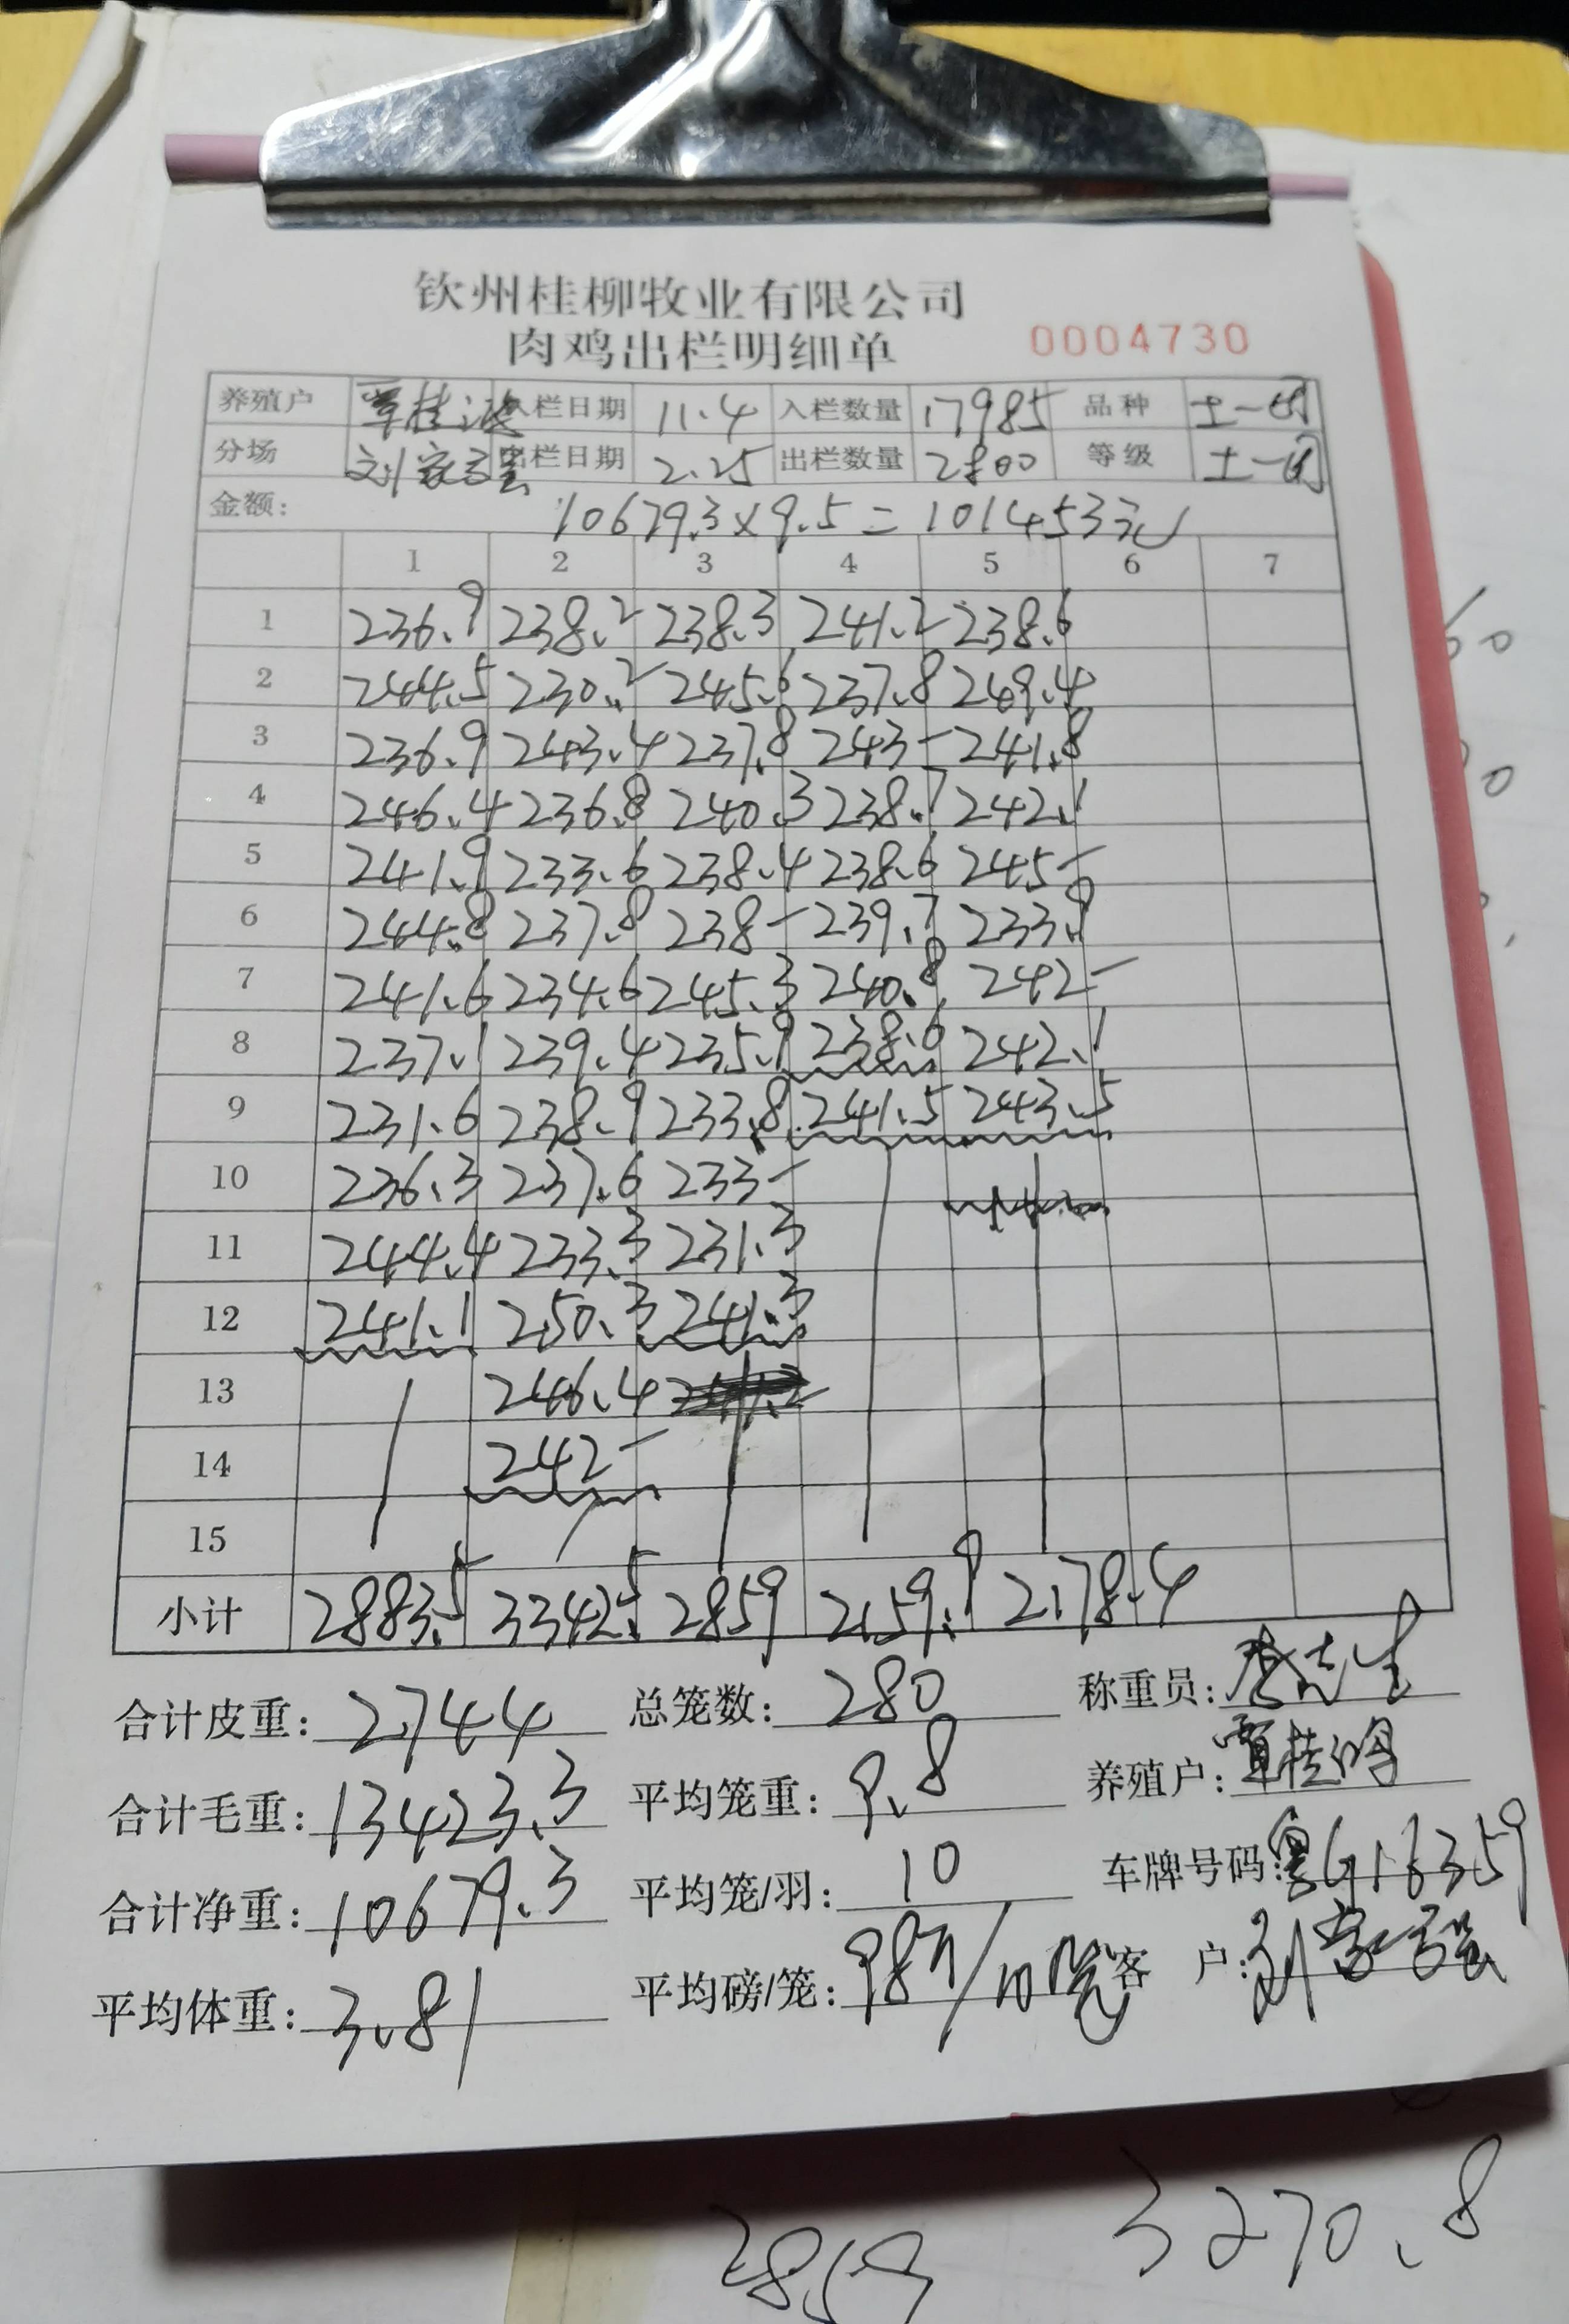 钦州桂柳牧业有限公司
肉鸡出栏明细单 0004730
养殖户 覃桂波 入栏日期 11.4 入栏数量 17985 品种 土一的
分场 刘家强 出栏日期 2.25 出栏数量 2800 等级 土一的
金额: 10679.3×9.5=101453元
1 2 3 4 5 6 7
1 236.9 238.2 238.3 241.2 238.6
2 244.5 230.2 245.6 237.8 249.4
3 236.9 243.4 237.8 243- 241.8
4 246.4 236.8 240.3 238.7 242.1
5 241.9 233.6 238.4 238.6 245-
6 244.8 237.8 238- 239.7 233.9
7 241.6 234.6 245.3 240.8 242-
8 237.1 239.4 235.9 238.6 242.1
9 231.6 238.9 233.8 241.5 243.5
10 236.3 237.6 233-
11 244.4 233.3 231.3
12 241.1 250.3 241.3
13 246.4
14 242-
15
小计 2883.5 3342.5 2859 2159.9 2178.4
合计皮重: 2744 总笼数: 280 称重员:
合计毛重: 13423.3 平均笼重: 9.8 养殖户: 覃桂
合计净重: 10679.3 平均笼/羽: 10 车牌号码: 粤G16359
平均体重: 3.81 平均磅/笼: 98斤/10笼 客户: 刘家强
2859 3270.8